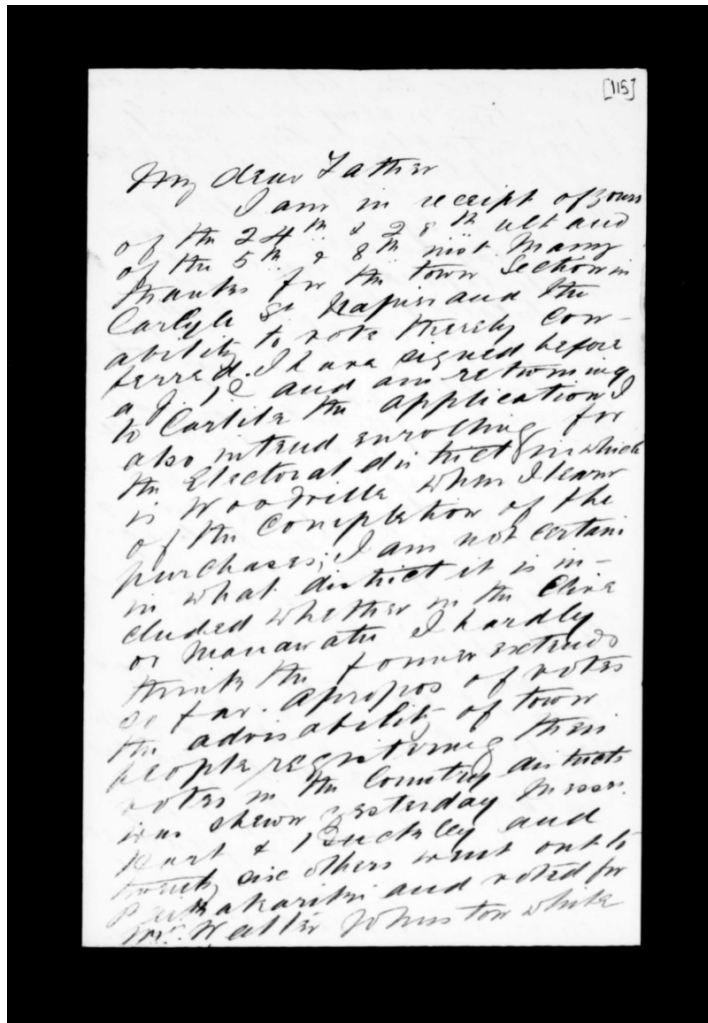 [115]
My dear Father
I am in receipt of yours
of the 24th & 28th ult and
of the 5th & 8th inst. Many
thanks for the town Section in
Carlyle St Napier and the
ability to vote thereby con-
ferred. I have signed before
a J.P. and am returning
to Carlile the application I
also intend enrolling for
the Electoral district in which
is Woodville when I learn
of the completion of the
purchases; I am not certain
in what district it is in-
cluded whether in the Clive
or Manawatu I hardly
think the former extends
so far. Apropos of votes
the advisability of town
people registering their
votes in the Country districts
was shewn yesterday Messrs.
Hart & Buckley and
twenty six others went out to
Paikakariki and voted for
Mr. Walter Johnston while